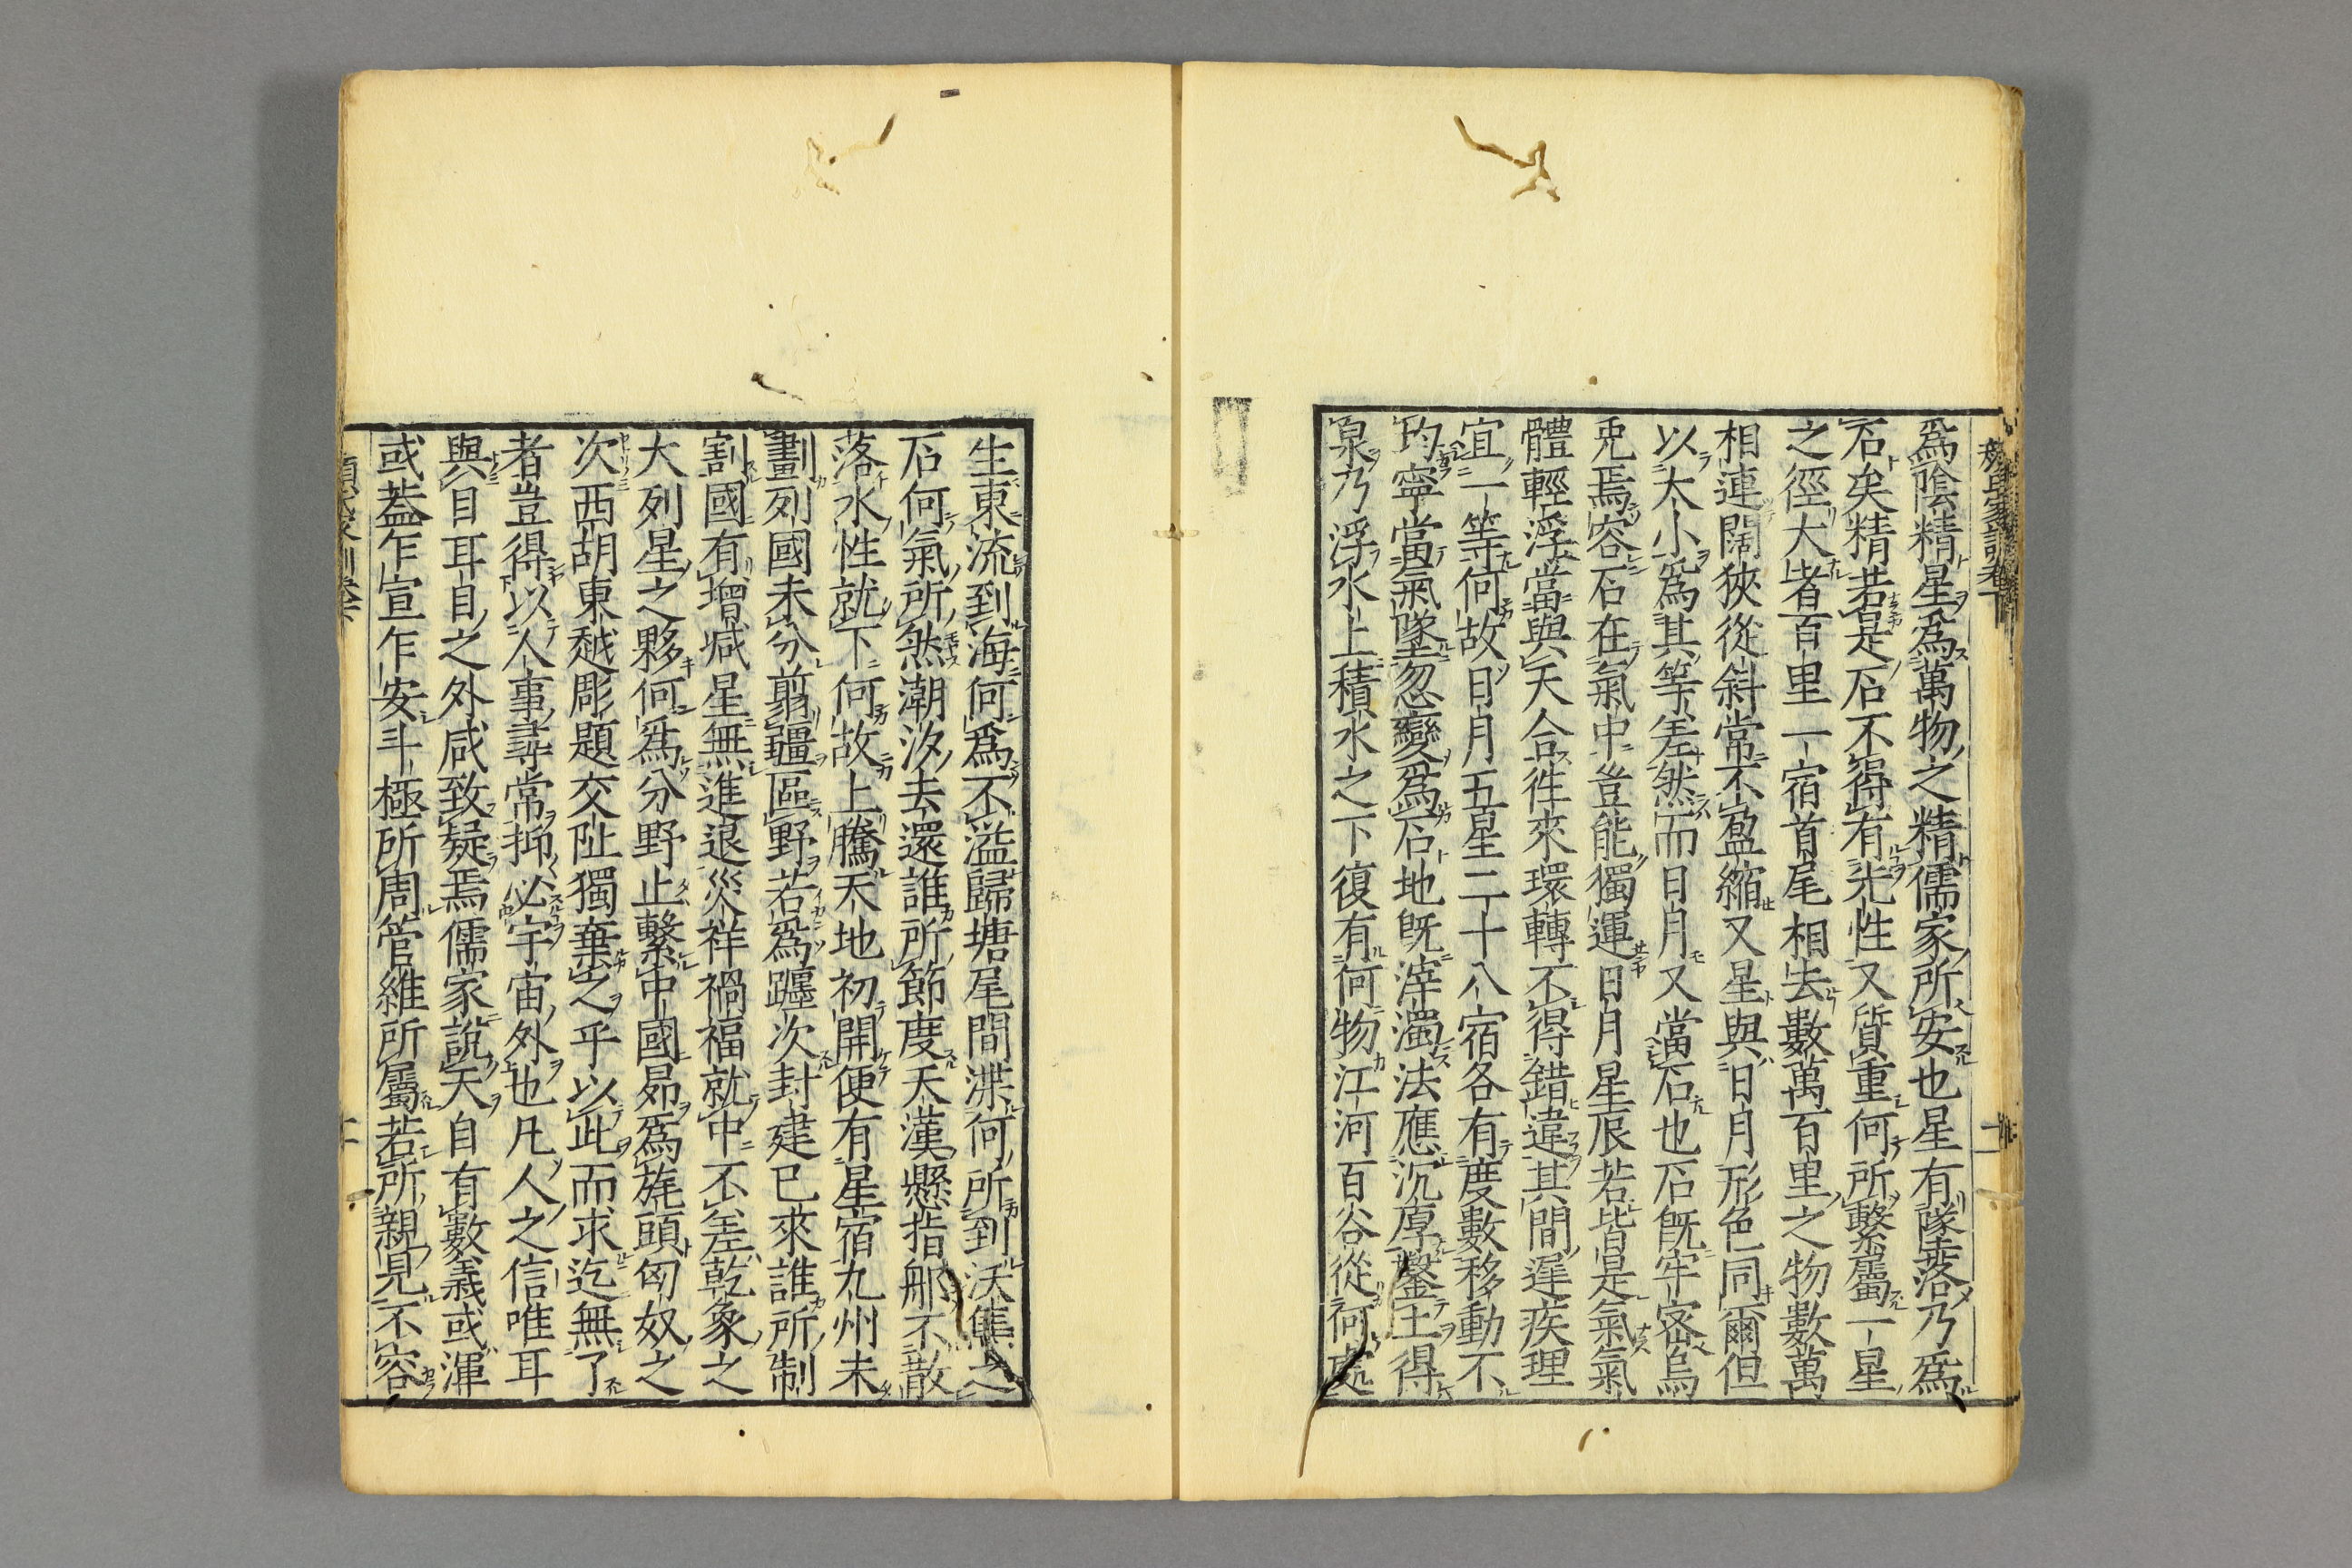 顏氏家訓卷下
爲陰精星爲萬物之精儒家所安也星有隊落乃爲
石矣精若是石不得有光性又質重何所繫屬一星
之徑大者百里一宿首尾相去數萬百里之物數萬
相連闊狹從斜常不盈縮又星與日月形色同爾但
以大小爲其等差然而日月又當石也石既牢宻烏
兎焉容石在氣中豈能獨運日月星辰若皆是氣氣
體輕浮當與天合徃來環轉不得錯違其間遲疾理
宜一等何故日月五星二十八宿各有度數移動不
均寧當氣墜忽變爲石地既滓濁法應沉厚鑿土得
泉乃浮水上積水之下復有何物江河百谷從何處
生東流到海何爲不溢歸塘尾閭渫何所到沃焦之
石何氣所然潮汐去還誰所節度天漢懸指那不散
落水性就下何故上騰天地初開便有星宿九州未
劃列國未分翦疆區野若爲躔次封建已來誰所制
割國有增减星無進退災祥禍福就中不差乾象之
大列星之夥何爲分野止繫中國昴爲旄頭匈奴之
次西胡東越彫題交阯獨棄之乎以此而求迄無了
者豈得以人事尋常抑必宇宙外也凡人之信唯耳
與目耳自之外咸致疑焉儒家說天自有數義或渾
或蓋乍宣乍安斗極所周管維所屬若所親見不容
顏氏家訓卷下